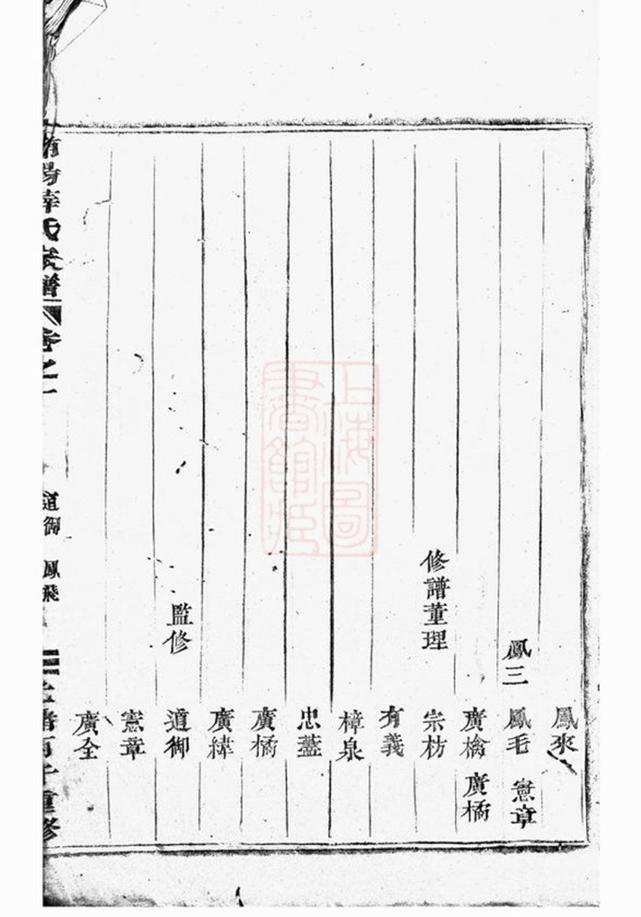 鳳來
鳳三 鳳毛 憲章
廣檎 廣橘
修譜董理 宗枋
有義
樟泉
忠藎
廣橘
廣緯
監修 道御
憲章
廣全
氏家譜 卷之一 道御 鳳飛 重修
上海圖書館藏